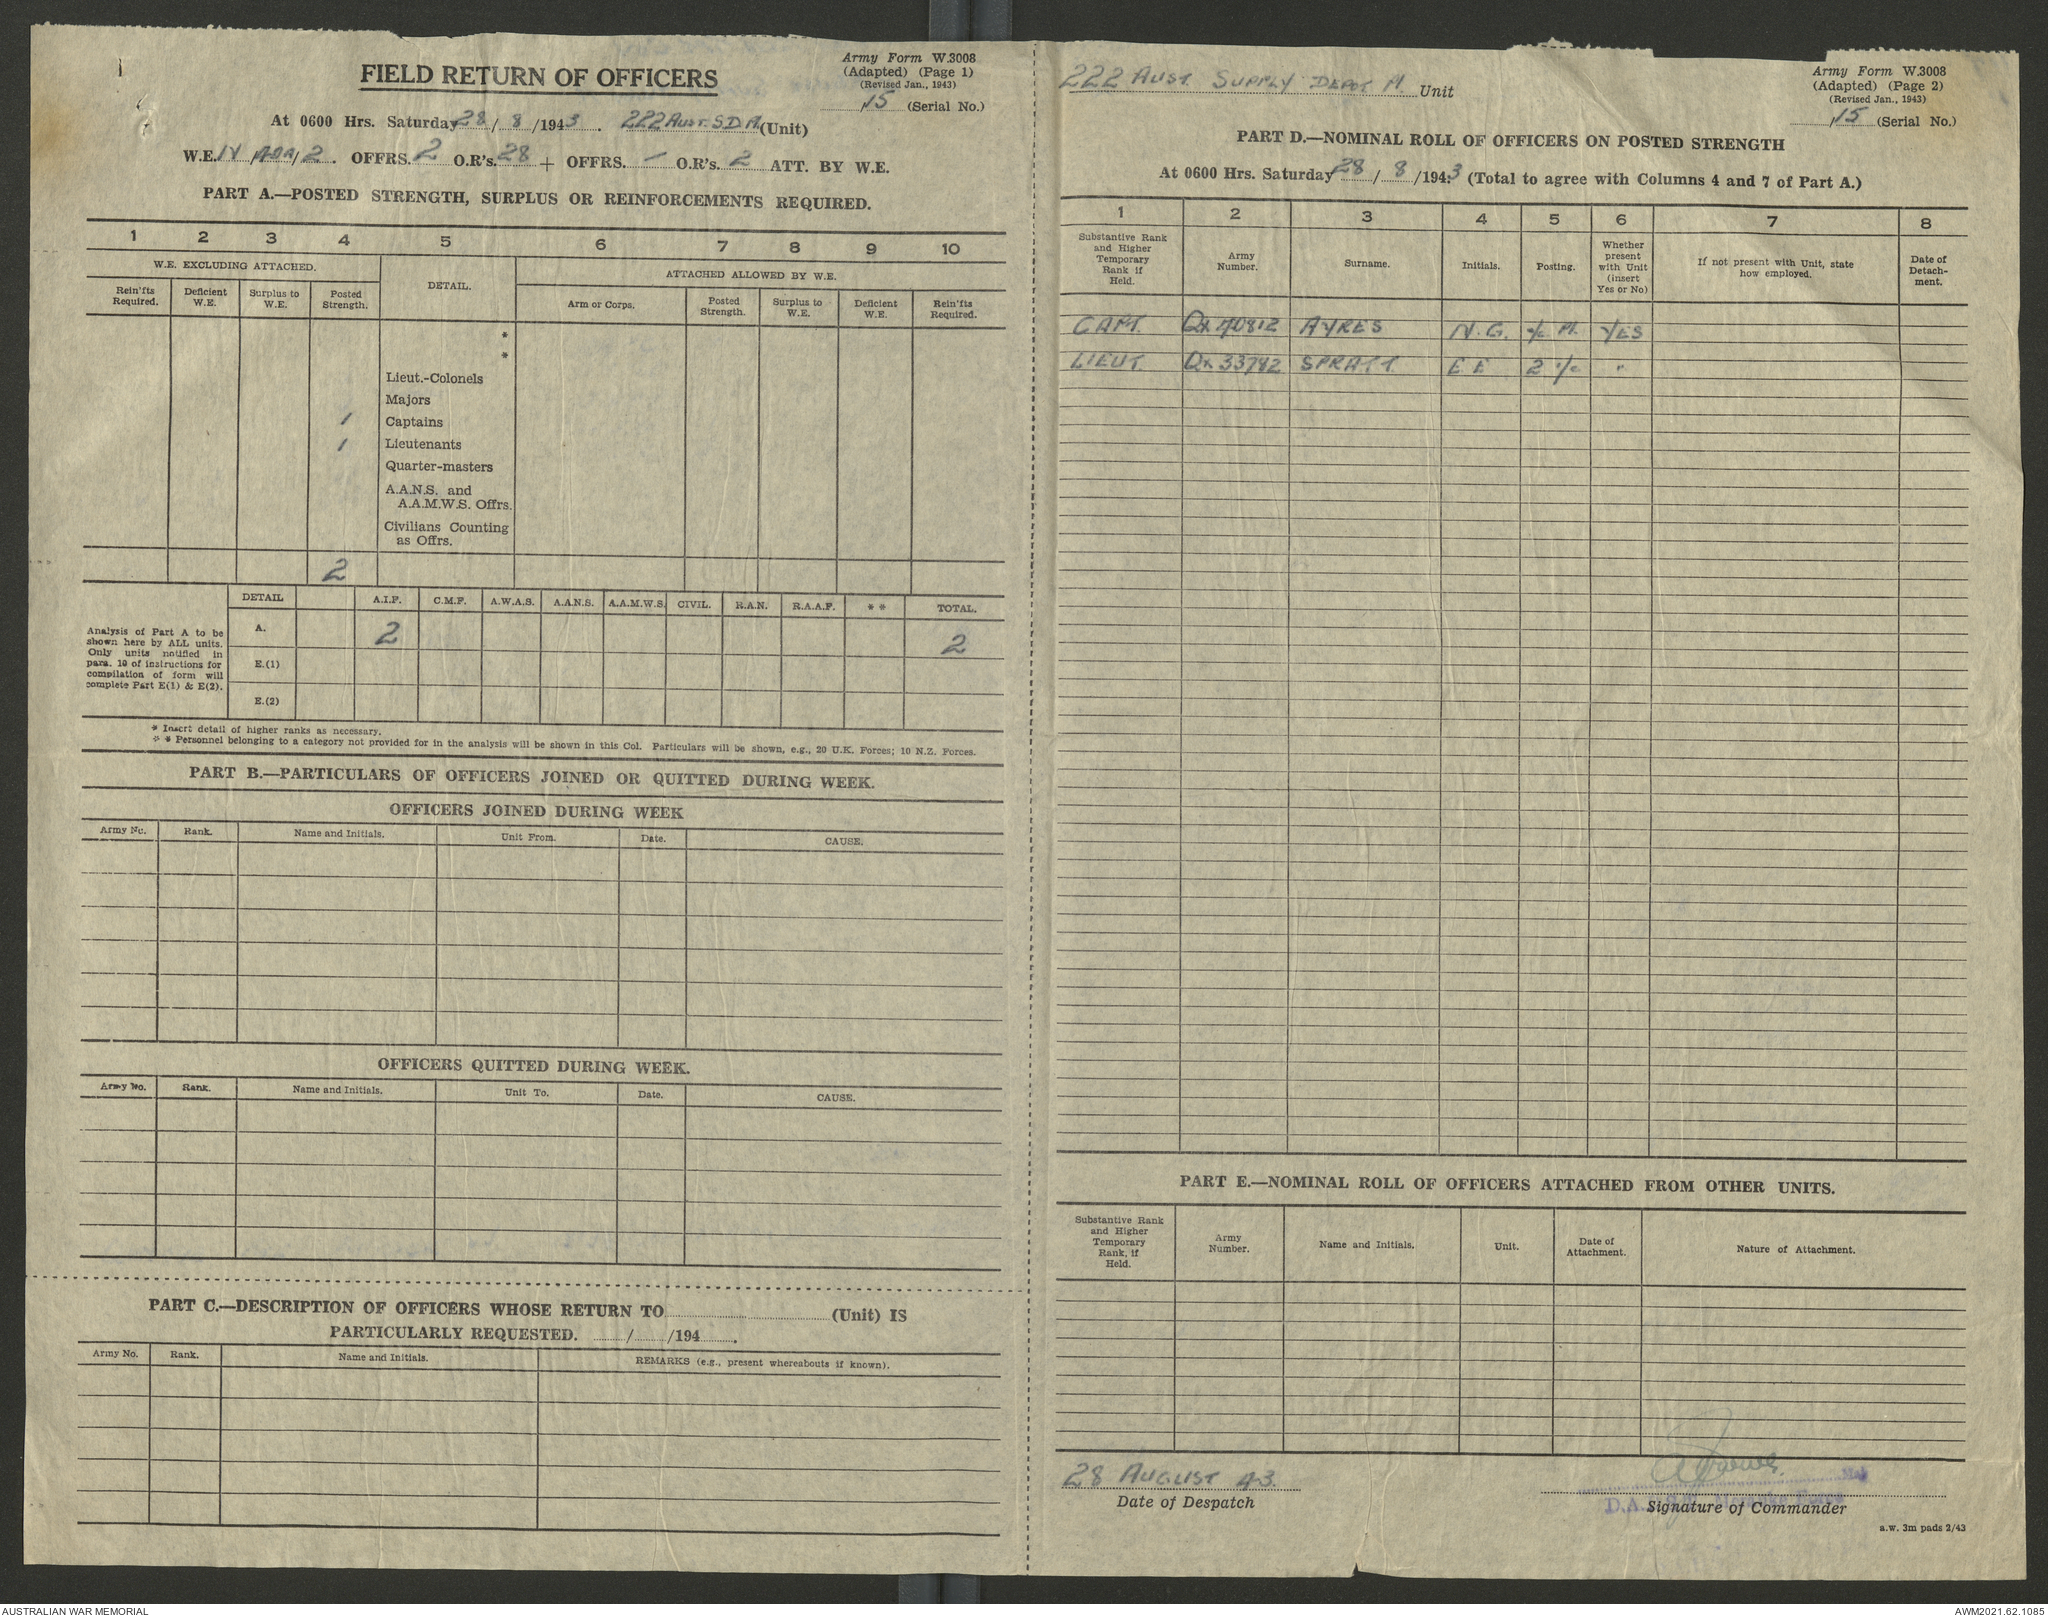 Army Form W.3008
(Adapted) (Page 1)
(Revised Jan., 1943)
15 (Serial No.)
FIELD RETURN OF OFFICERS
At 0600 Hrs. Saturday 28/8/1943. 222 AUST. S D M. (Unit)
W.E. IV/ /2. OFFRS. 2 O.R's. 28 + OFFRS. — O.R's. 2 ATT. BY W.E.
PART A.—POSTED STRENGTH, SURPLUS OR REINFORCEMENTS REQUIRED.
1 2 3 4 5 6 7 8 9 10
W.E. EXCLUDING ATTACHED. DETAIL. ATTACHED ALLOWED BY W.E.
Rein'fts Required. Deficient W.E. Surplus to W.E. Posted Strength. Arm or Corps. Posted Strength. Surplus to W.E. Deficient W.E. Rein'fts Required.
*
*
Lieut.-Colonels
Majors
1 Captains
1 Lieutenants
Quarter-masters
A.A.N.S. and
A.A.M.W.S. Offrs.
Civilians Counting
as Offrs.
2
DETAIL A.I.F. C.M.F. A.W.A.S. A.A.N.S. A.A.M.W.S. CIVIL. R.A.N. R.A.A.F. * * TOTAL.
Analysis of Part A to be
shown here by ALL units.
Only units notified in
para. 10 of instructions for
compilation of form will
complete Part E(1) & E(2).
A. 2 2
E.(1)
E.(2)
* Insert detail of higher ranks as necessary.
* * Personnel belonging to a category not provided for in the analysis will be shown in this Col. Particulars will be shown, e.g., 20 U.K. Forces; 10 N.Z. Forces.
PART B.—PARTICULARS OF OFFICERS JOINED OR QUITTED DURING WEEK.
OFFICERS JOINED DURING WEEK
Army No. Rank. Name and Initials. Unit From. Date. CAUSE.
OFFICERS QUITTED DURING WEEK.
Army No. Rank. Name and Initials. Unit To. Date. CAUSE.
PART C.—DESCRIPTION OF OFFICERS WHOSE RETURN TO (Unit) IS
PARTICULARLY REQUESTED. / /194 .
Army No. Rank. Name and Initials. REMARKS (e.g., present whereabouts if known).
222 AUST. SUPPLY DEPOT M. Unit
Army Form W.3008
(Adapted) (Page 2)
(Revised Jan., 1943)
15 (Serial No.)
PART D.—NOMINAL ROLL OF OFFICERS ON POSTED STRENGTH
At 0600 Hrs. Saturday 28/8/1943 (Total to agree with Columns 4 and 7 of Part A.)
1 2 3 4 5 6 7 8
Substantive Rank and Higher Temporary Rank if Held. Army Number. Surname. Initials. Posting. Whether present with Unit (insert Yes or No) If not present with Unit, state how employed. Date of Detach-ment.
CAPT. QX40812 AYRES N. G. YES
LIEUT QX33782 SPRATT E E 2 i/c "
PART E.—NOMINAL ROLL OF OFFICERS ATTACHED FROM OTHER UNITS.
Substantive Rank and Higher Temporary Rank, if Held. Army Number. Name and Initials. Unit. Date of Attachment. Nature of Attachment.
28 AUGUST 43.
Date of Despatch
Maj
D.A.
Signature of Commander
a.w. 3m pads 2/43
AUSTRALIAN WAR MEMORIAL
AWM2021.62.1085